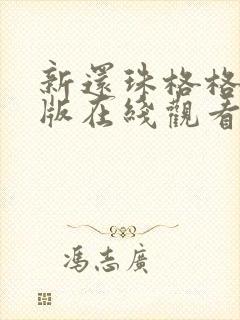 新還珠格格
版在綫觀看
馮志廣